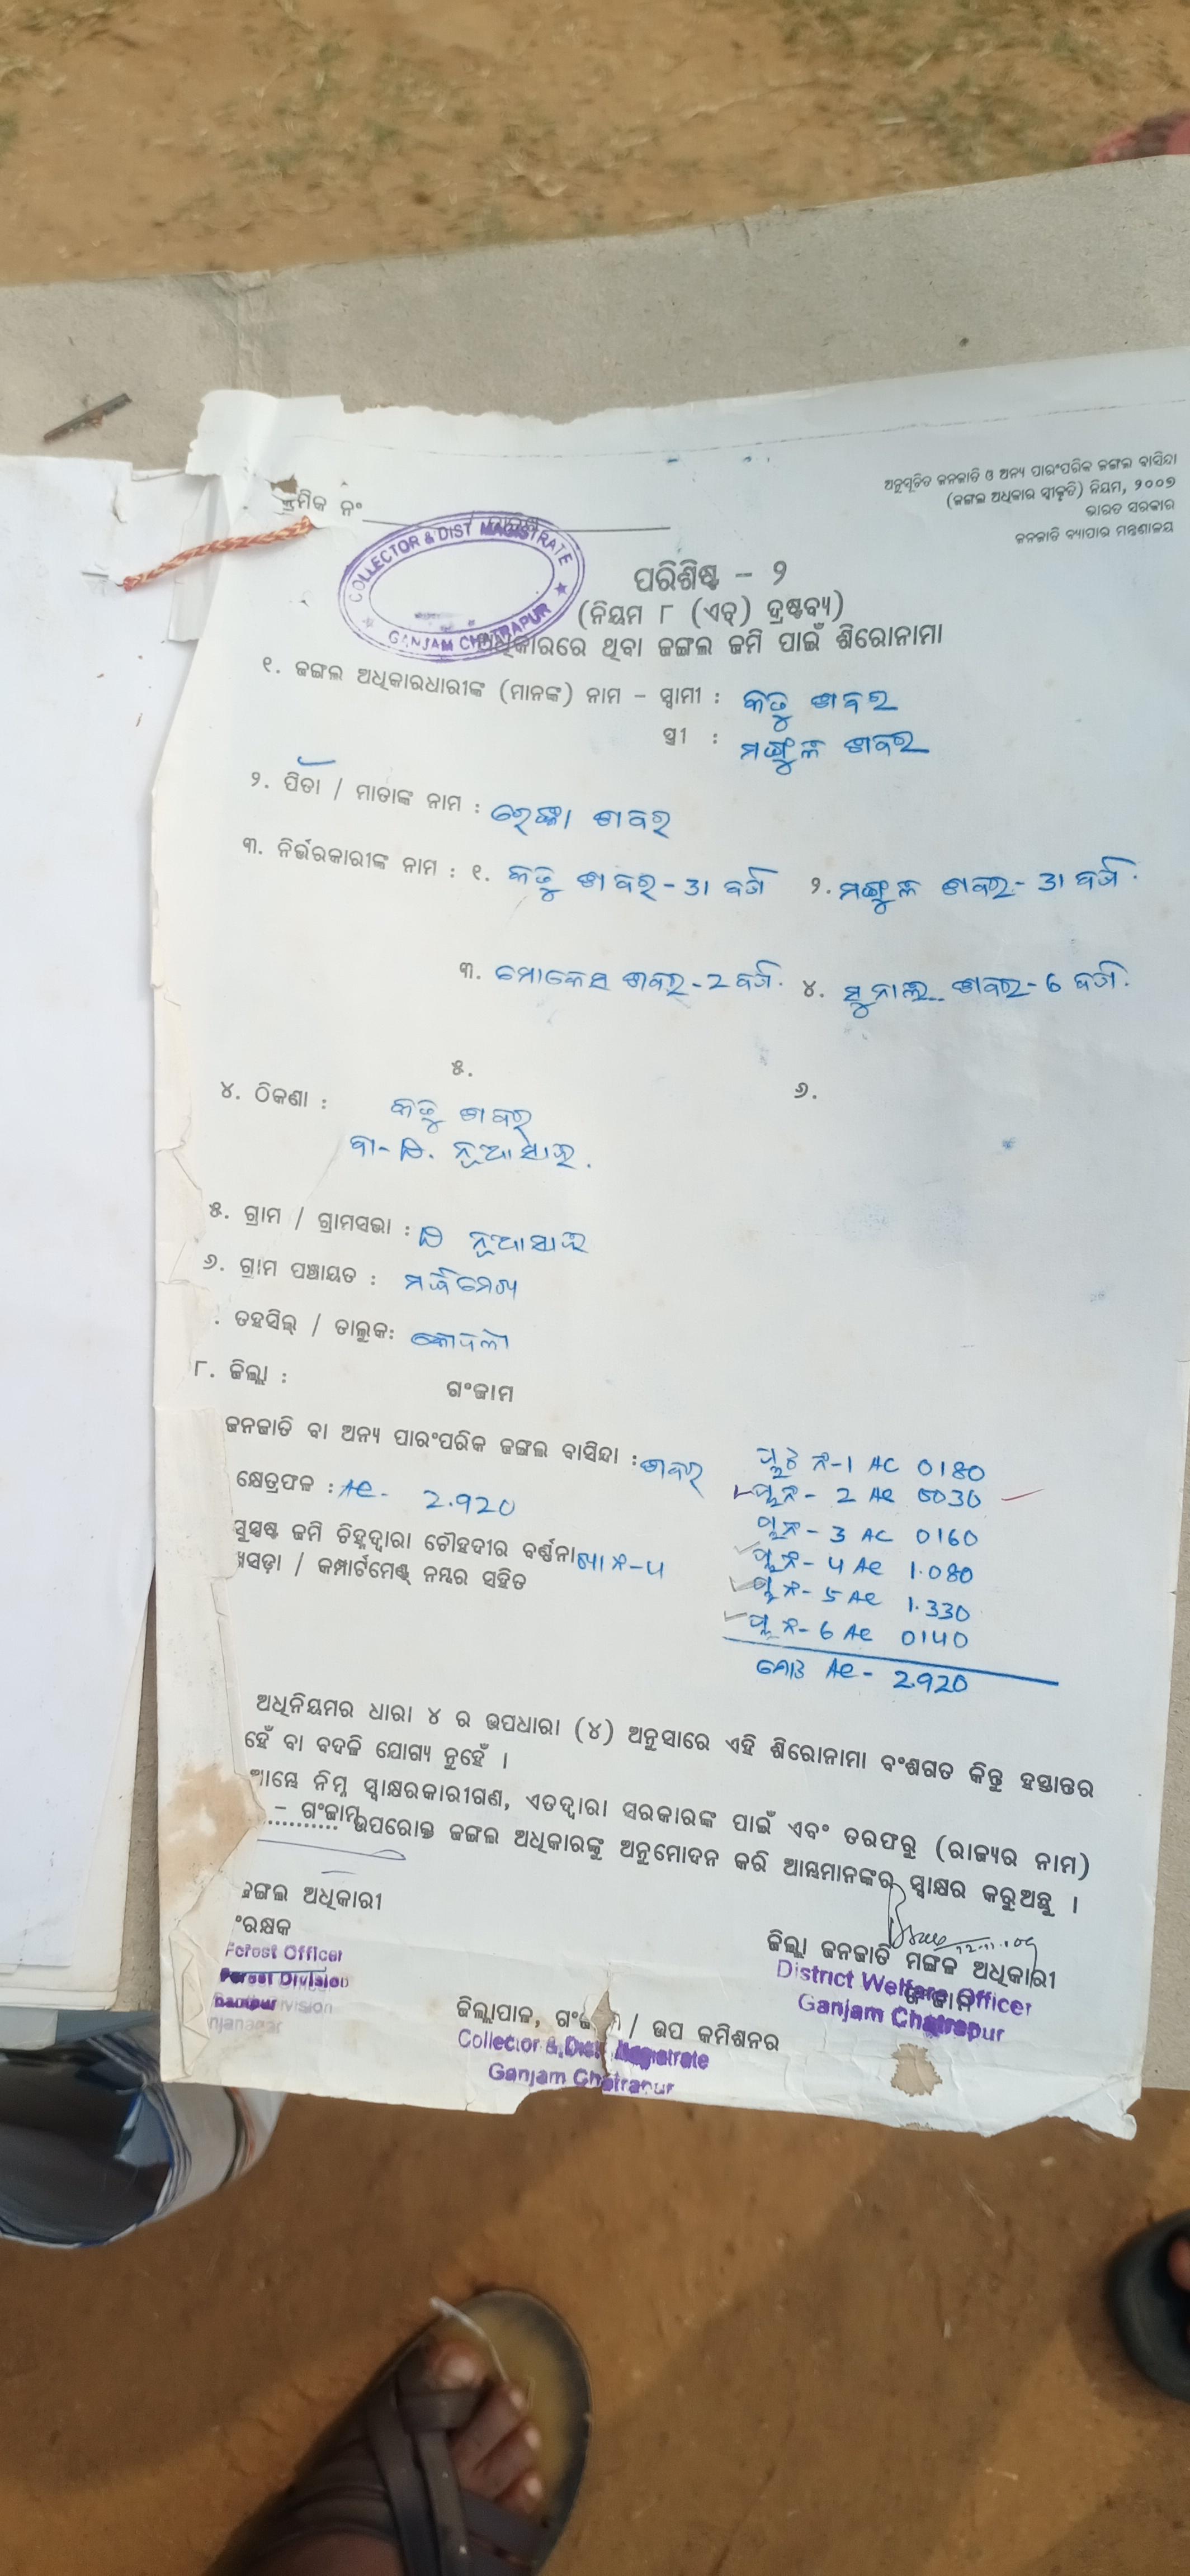 ଅନୁସୂଚିତ ଜନଜାତି ଓ ଅନ୍ୟ ପାରଂପରିକ ଜଙ୍ଗଲ ବାସିନ୍ଦା
(ଜଙ୍ଗଲ ଅଧିକାର ସ୍ୱୀକୃତି) ନିୟମ, ୨୦୦୭
ଭାରତ ସରକାର
ଜନଜାତି ବ୍ୟାପାର ମନ୍ତ୍ରଣାଳୟ
କ୍ରମିକ ନଂ
COLLECTOR & DIST MAGISTRATE
GANJAM CHATRAPUR
ପରିଶିଷ୍ଟ - ୨
(ନିୟମ ୮ (ଏଚ୍) ଦ୍ରଷ୍ଟବ୍ୟ)
ଅଧିକାରରେ ଥିବା ଜଙ୍ଗଲ ଜମି ପାଇଁ ଶିରୋନାମା
୧. ଜଙ୍ଗଲ ଅଧିକାରଧାରୀଙ୍କ (ମାନଙ୍କ) ନାମ - ସ୍ୱାମୀ : କଡୁ ଶବର
ସ୍ତ୍ରୀ : ଶବର
୨. ପିତା / ମାତାଙ୍କ ନାମ : ଶବର
୩. ନିର୍ଭରକାରୀଙ୍କ ନାମ : ୧. କଡୁ ଶବର - 31 ବର୍ଷ ୨. ଶବର - 31 ବର୍ଷ
୩. ଶବର - 2 ବର୍ଷ ୪. ଶବର - 6 ବର୍ଷ
୫. ୬.
୪. ଠିକଣା : କଡୁ ଶବର
ନୂଆସାଇ.
୫. ଗ୍ରାମ / ଗ୍ରାମସଭା : ନୂଆସାଇ
୬. ଗ୍ରାମ ପଞ୍ଚାୟତ :
. ତହସିଲ୍ / ତାଲୁକ: କୋଦଳା
୮. ଜିଲ୍ଲା : ଗଂଜାମ
ଜନଜାତି ବା ଅନ୍ୟ ପାରଂପରିକ ଜଙ୍ଗଲ ବାସିନ୍ଦା : ଶବର
କ୍ଷେତ୍ରଫଳ : Ac - 2.920
ସୁସ୍ପଷ୍ଟ ଜମି ଚିହ୍ନଦ୍ୱାରା ଚୌହଦୀର ବର୍ଣ୍ଣନା
ଖସଡ଼ା / କମ୍ପାର୍ଟମେଣ୍ଟ୍ ନମ୍ୱର ସହିତ
ପ୍ଲଟ ନଂ-1 AC 0180
ପ୍ଲ ନଂ - 2 Ac 0030
ପ୍ଲ ନଂ - 3 AC 0160
ପ୍ଲ ନଂ - 4 Ac 1.080
ପ୍ଲ ନଂ - 5 Ac 1.330
ପ୍ଲ ନଂ - 6 Ac 0140
ମୋଟ Ac - 2.920
ଅଧିନିୟମର ଧାରା ୪ ର ଉପଧାରା (୪) ଅନୁସାରେ ଏହି ଶିରୋନାମା ବଂଶଗତ କିନ୍ତୁ ହସ୍ତାନ୍ତର
ହେଁ ବା ବଦଳି ଯୋଗ୍ୟ ନୁହେଁ ।
ଆମ୍ଭେ ନିମ୍ନ ସ୍ୱାକ୍ଷରକାରୀଗଣ, ଏତଦ୍ୱାରା ସରକାରଙ୍କ ପାଇଁ ଏବଂ ତରଫରୁ (ରାଜ୍ୟର ନାମ)
- ଗଂଜାମ ଉପରୋକ୍ତ ଜଙ୍ଗଲ ଅଧିକାରଙ୍କୁ ଅନୁମୋଦନ କରି ଆମ୍ଭମାନଙ୍କର ସ୍ୱାକ୍ଷର କରୁଅଛୁ ।
ଜଙ୍ଗଲ ଅଧିକାରୀ
ଂରକ୍ଷକ
Forest Officer
Forest Division
ଜିଲ୍ଲା ଜନଜାତି ମଙ୍ଗଳ ଅଧିକାରୀ
District Welfare Officer
Ganjam Chatrapur
ଜିଲ୍ଲାପାଳ, ଗଂଜାମ / ଉପ କମିଶନର
Collector & Dist Magistrate
Ganjam Chatrapur